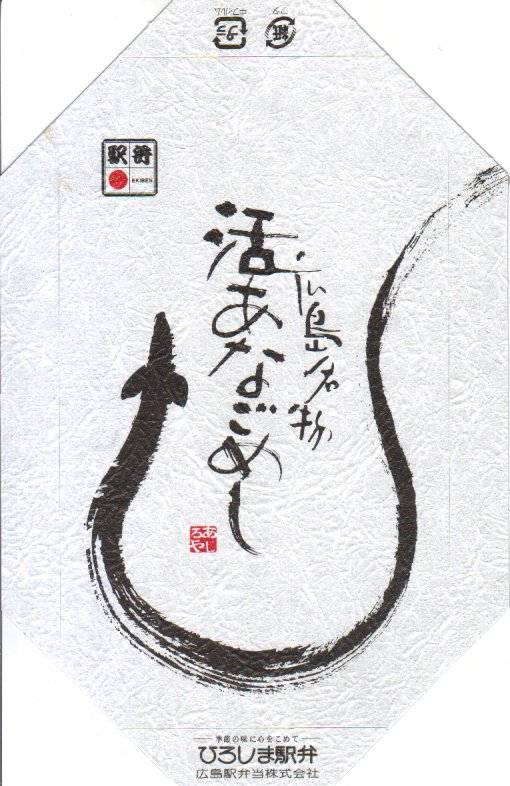 プラ
中フィルム
紙
フタ
駅弁
EKIBEN
広島名物
活あなごめし
あじ
ろや
季節の味に心をこめて
ひろしま駅弁
広島駅弁当株式会社